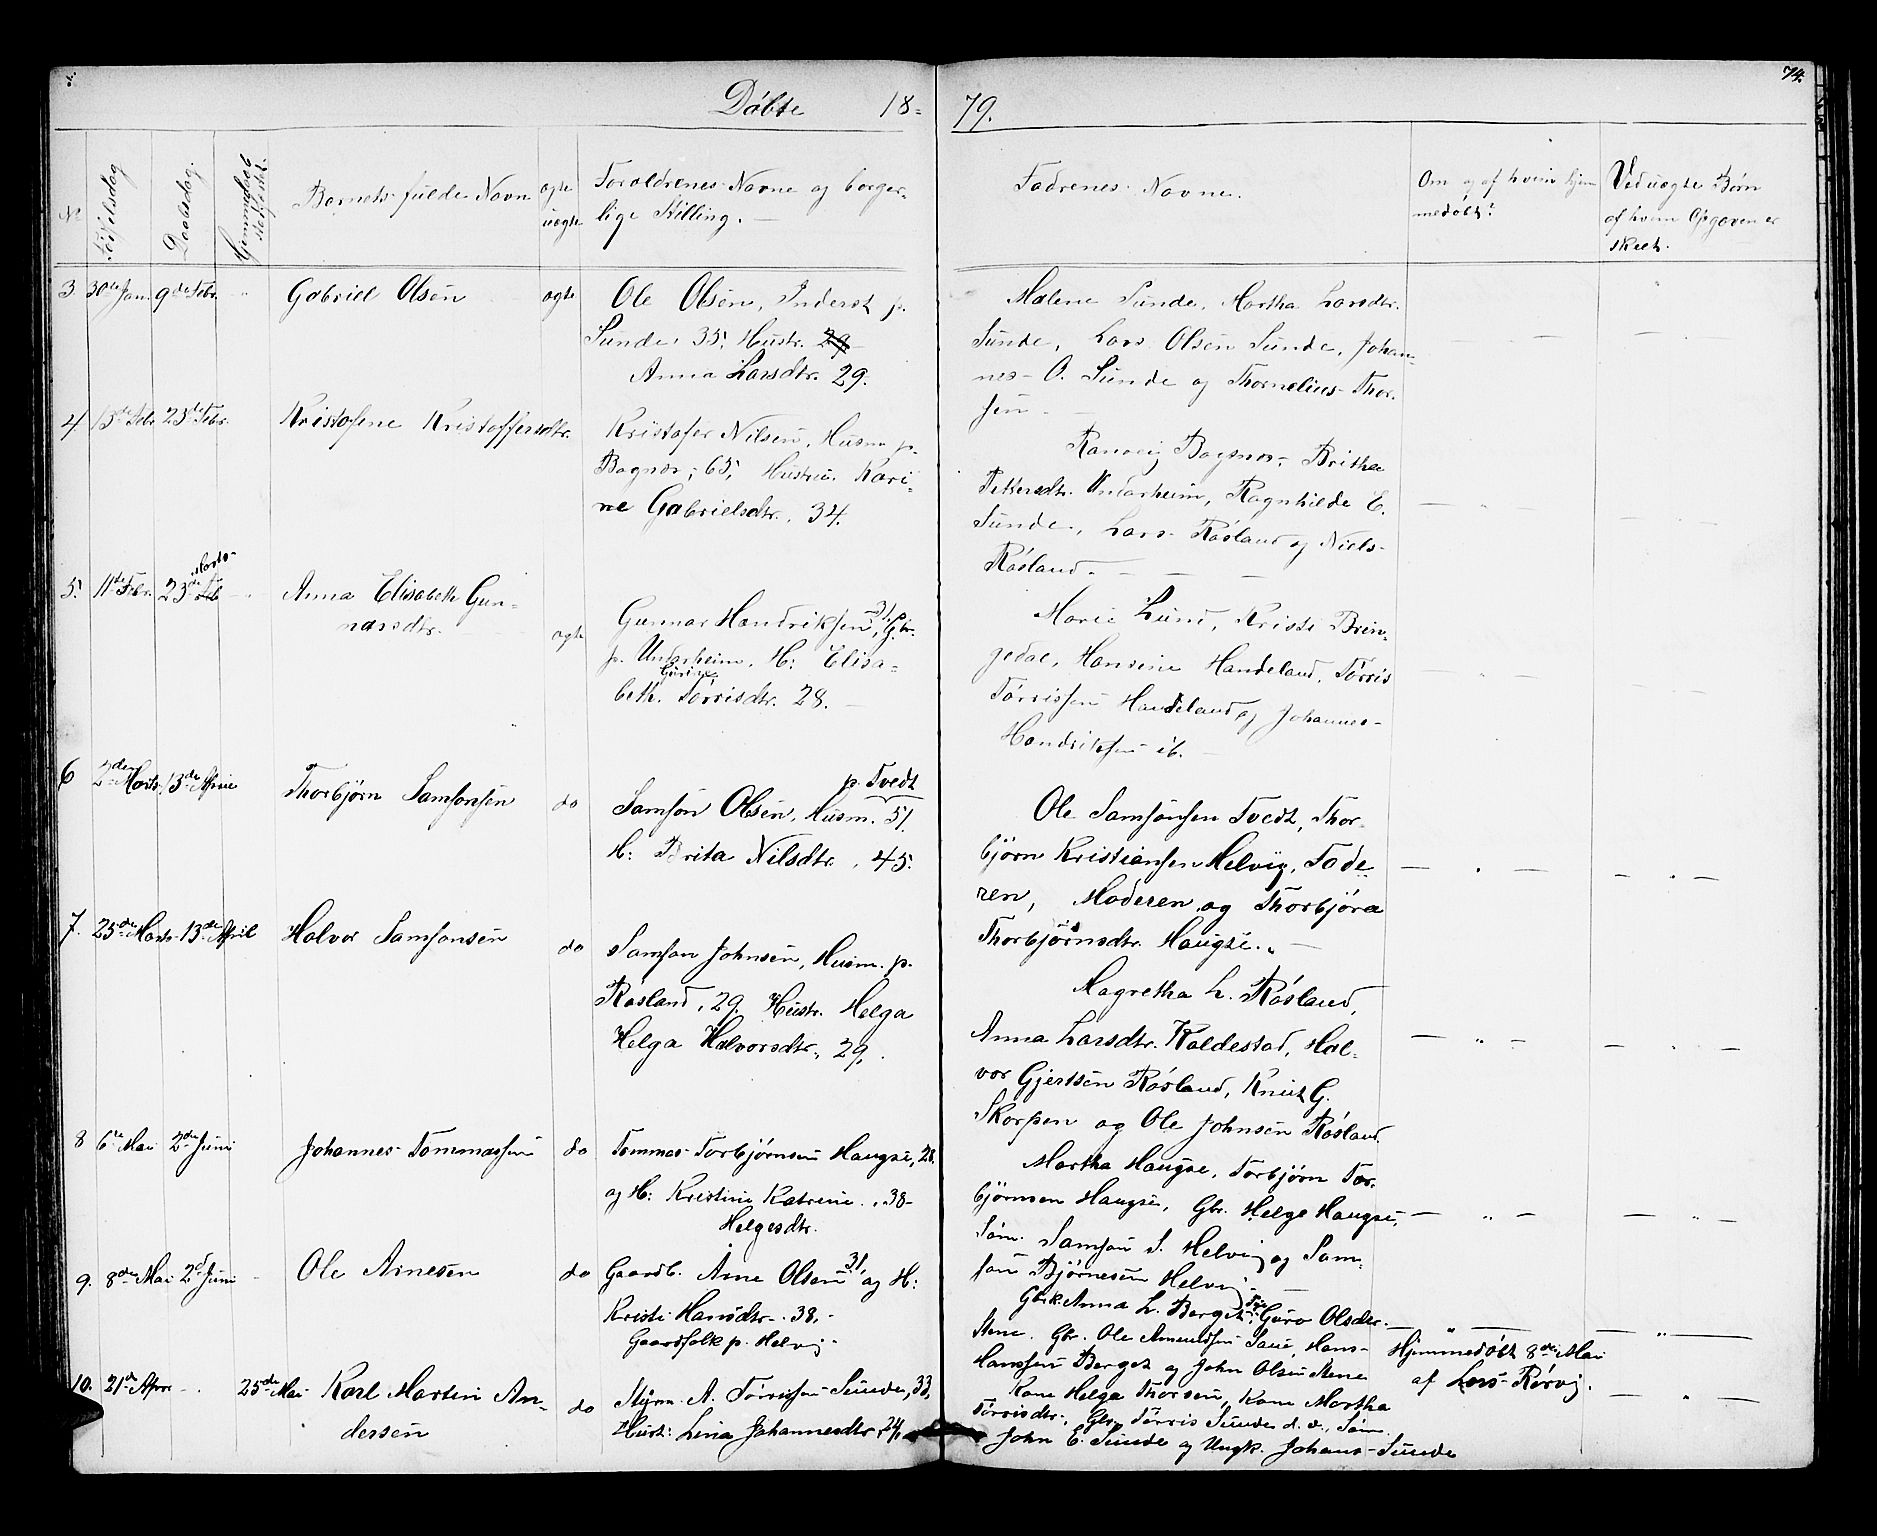 74.
Döbte 18-79.
No
Födselsdag
Daabsdag.
Barnets fulde Navn
ægte
uægte
Forældrenes Navne og borger-
lige Stilling.
Fadrenes Navne.
Om og af hvem hjem
medöbt?
Ved uægte Börn
af hvem Opgaven er
skeet.
3 30te Jan. 9de Febr. Gabriel Olsen ægte
Ole Olsen, Inderst p.
Sunde, 35, Hustr. 29
Anna Larsdtr. 29.
Malene Sunde, Martha Larsdtr.
Sunde, Lars Olsen Sunde, Johan-
nes O. Sunde og Thornelius Thor-
sen
4 13de Febr. 23de Febr. Kristofene Kristoffersdtr.
Kristofer Nilsen, Husm. p.
Bognæs, 65, Hustru Kari-
ne Gabrielsdtr., 34.
Ranveig Bognæs, Britha
Pettersdtr. Undarheim, Ragnhilde E.
Sunde, Lars Rösland og Niels
Rösland.
5. 11te Febr. 23de Feb Marts Anna Elisabeth Gun-
narsdtr. ægte
Gunnar Handriksen, 31, Gbr.
p. Undarheim. H: Elisa-
beth Gurine Törrisdtr. 28.
Marie Lund, Kristi Brin-
gedal, Hansine Handeland, Törris
Törrissen Handeland og Johannes
Handriksen ib.
6 2den Marts 13de April Thorbjörn Samsonsen do
p. Tvedt
Samson Olsen, Husm. 51.
H: Brita Nilsdtr., 45.
Ole Samsonsen Tvedt, Thor-
björn Kristiansen Helvig, Fade-
ren, Moderen og Thorbjöra
Thorbjörnsdtr. Haugse.
7. 25de Marts 13de April Halvor Samsonsen do
Samson Johnsen, Husm. p.
Rösland, 29. Hustr. Helga
Helga Halvorsdtr., 29.
Magretha L. Rösland,
Anna Larsdtr. Kaldestad, Hal-
vor Gjertsen Rösland, Knut G.
Skorpen og Ole Johnsen Rösland.
8 6te Mai 2den Juni Johannes Tommassen do
Tommas Torbjörnsen Haugse, 28.
og H: Kristine Katrine, 38
Helgesdtr.
Martha Haugse, Torbjörn Tor-
björnsen Haugse, Gbr. Helge Haugse,
Söm. Samson S. Helvig og Sam-
son Björnesen Helvig
9. 8de Mai 2d Juni Ole Arnesen do
Gaardb. Arne Olsen 31, og H:
Kristi Hansdtr. 38,
Gaardfolk p. Helvig
Gbrk. Anna L. Berget, Guro Olsdtr.
Stene, Gbr. Ole Amundsen Saue, Hans
Hanssen Berget og John Olsen Stene
10. 21de April 25de Mai Karl Martin An-
dersen do
Styrm. A. Törrissen Sunde, 33,
Hust: Lina Johannesdtr, 24,
Kone Helga Thorsen, Kone Martha
Törrisdtr., Gbr. Törris Sunde d. æ., Söm.
John E. Sunde og Ungk. Johans Sunde
Hjemmedöbt 8de Mai
af Lars Rörvig.